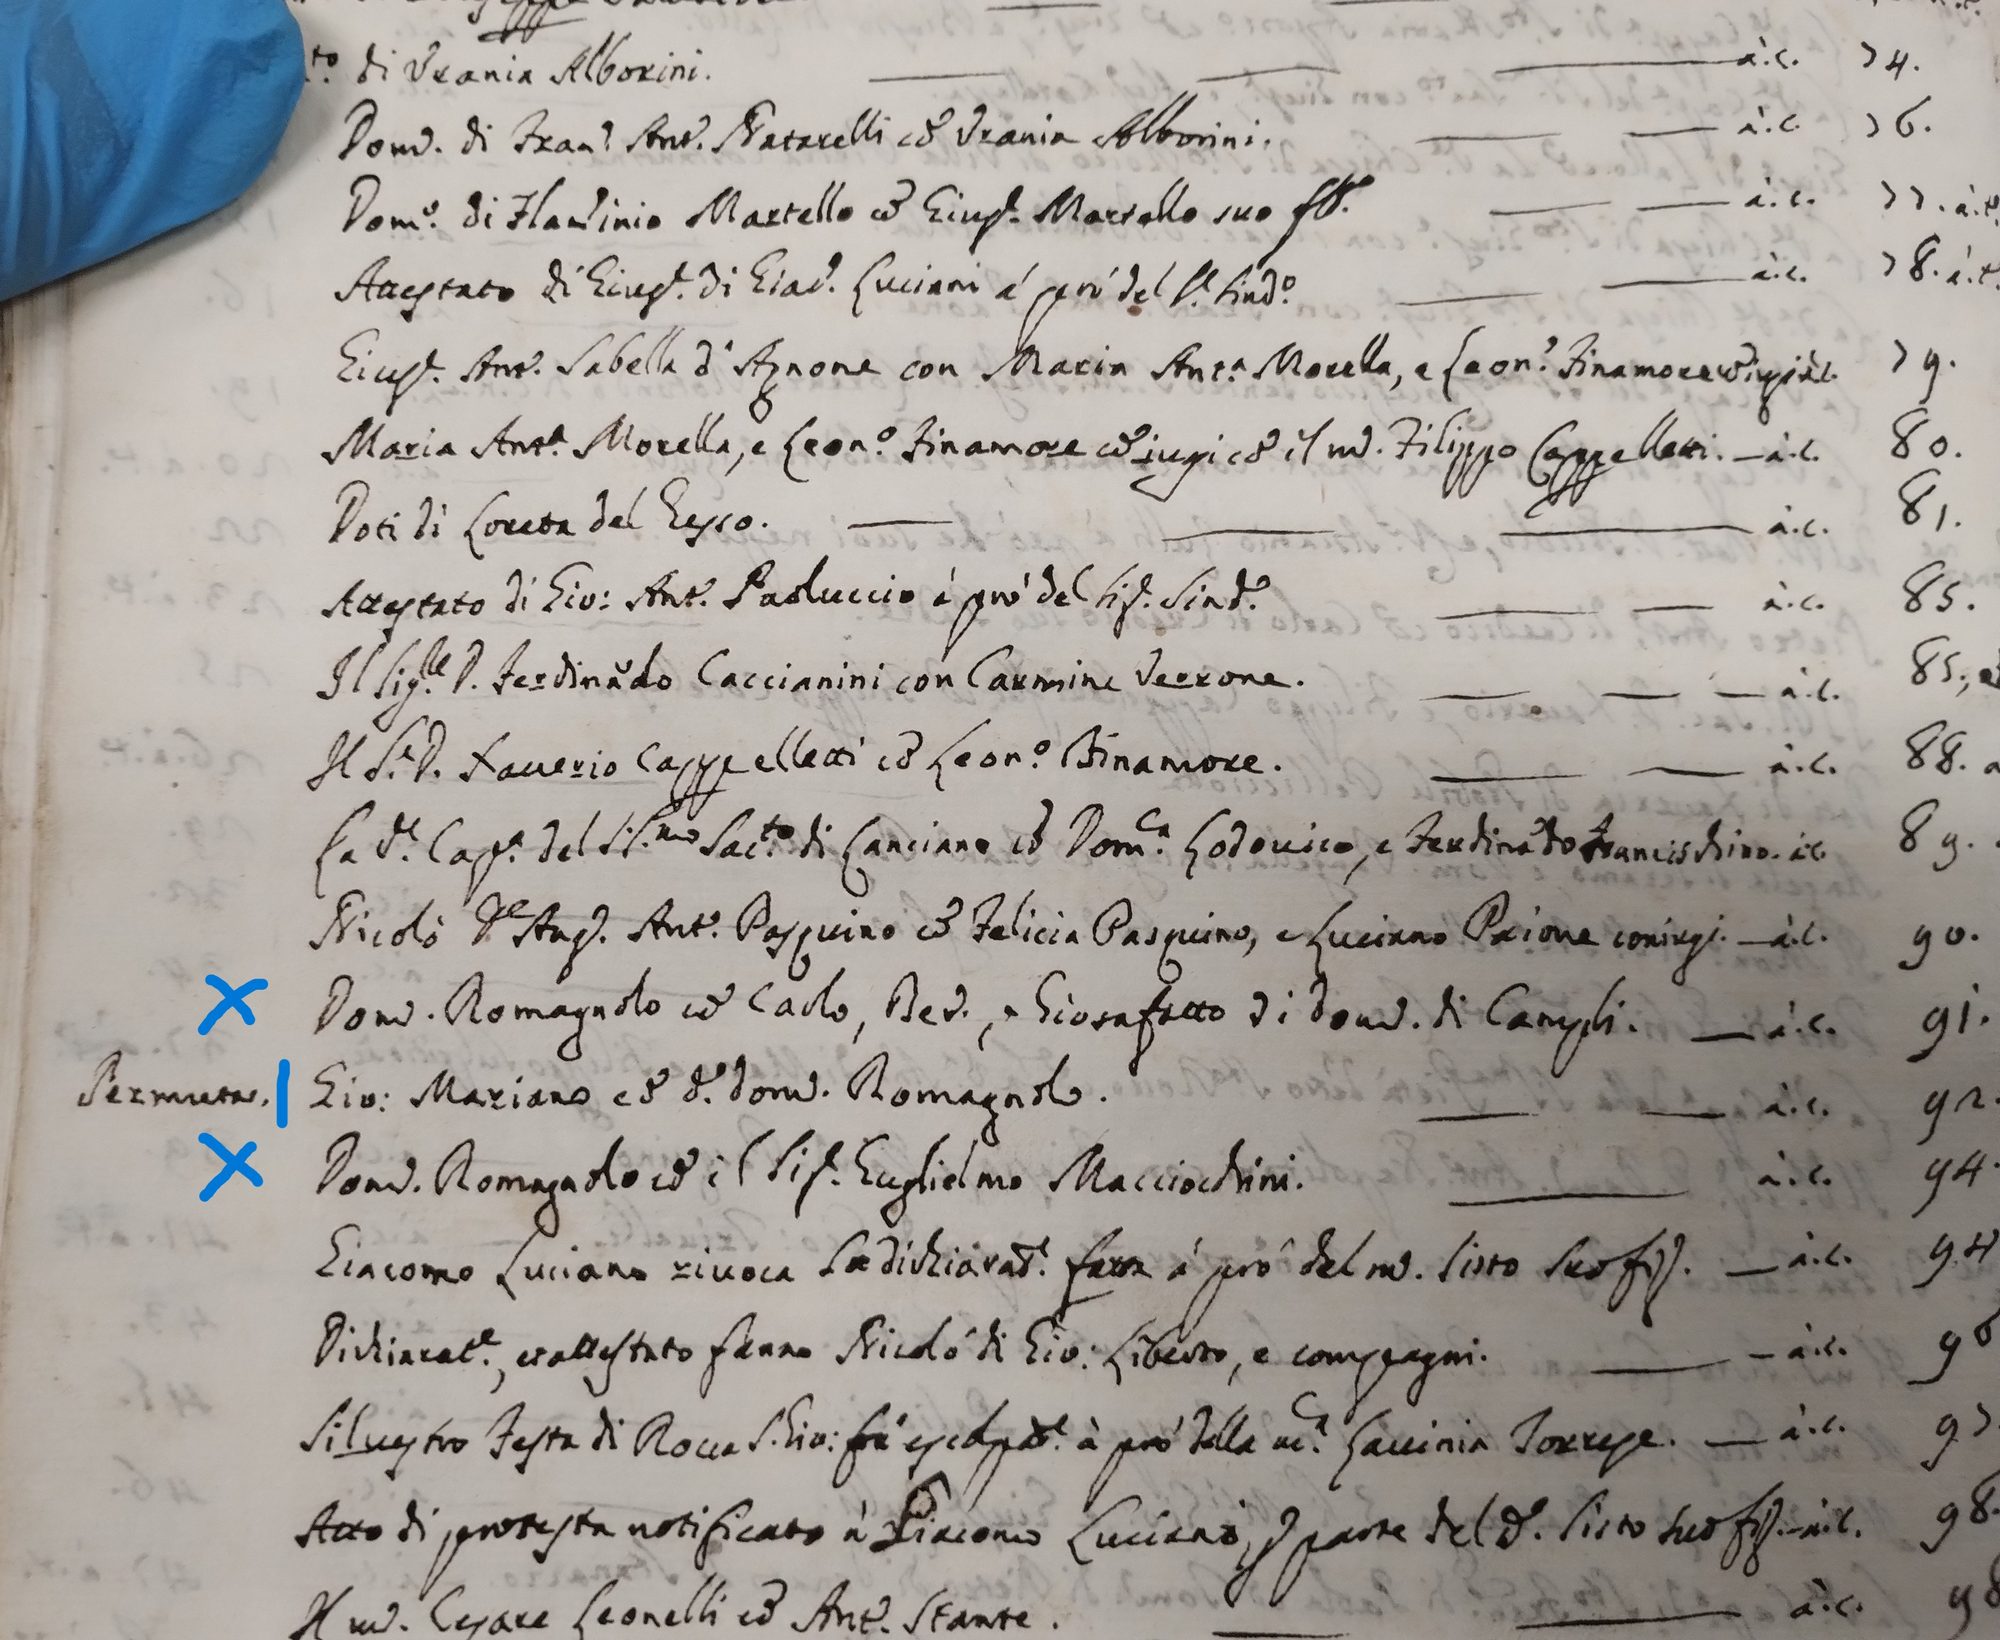 di Urania Alborini. à.c. 74.
Dom.o di Fran.o Ant.o Natarelli co Urania Alborini. à.c. 76.
Dom.o di Flaminio Martello co Giusp.e Martello suo à.c. 77. à.t.
Attestato di Giusp.e di Giac.o Luciani à prò del S.r Sind.o à.c. 78. à.t.
Giusp.e Ant.o Sabella d'Agnone con Maria Ant.a Morella, e Leon.o Finamore à.c. 79.
Maria Ant.a Morella, e Leon.o Finamore coiugi co il m.o Filippo Cappelletti. à.c. 80.
Doti di Loreta del Gesso. à.c. 81.
Attestato di Gio: Ant.o Paoluccio à prò del Sig.r Sind.o à.c. 85.
Il Sig.re D. Ferdinãdo Caccianini con Carmine Verrone. à.c. 85,
Il S.r D. Saverio Cappelletti co Leon.o Finamore. à.c. 88.
La V.e Capp.a del SS.mo Sac.to di Lanciano co Dom.ca Lodovico, e Ferdinãdo Francischino. à.c. 89.
Nicolò D'Ang.o Ant.o Pasquino co Felicia Pasquino, e Luciano Paione coniugi. à.c. 90.
Dom.o Romagnolo co Carlo, Bed., e Giosafatto di Dom.o di Campli. à.c. 91.
Permuta. Gio: Mariano co d.o Dom.o Romagnolo. à.c. 92.
Dom.o Romagnolo co il Sig.r Guglielmo Macciochini. à.c. 94.
Giacomo Luciano rivoca la dichiarat.e fatta à prò del m.o Sisto suo fig. à.c. 94
Dichiarat.e, et attestato fanno Nicolò di Gio: Liberto, e compagni. à.c. 96
Silvestro Testa di Rocca S. Gio: fà à prò della m.ca Lavinia Torrese. à.c. 97
Atto di protesta notificato à Giacomo Luciano, p parte del d.o Sisto suo fig. à.c. 98.
Il m.o Cesare Leonelli co Ant.o Stante. à.c. 98